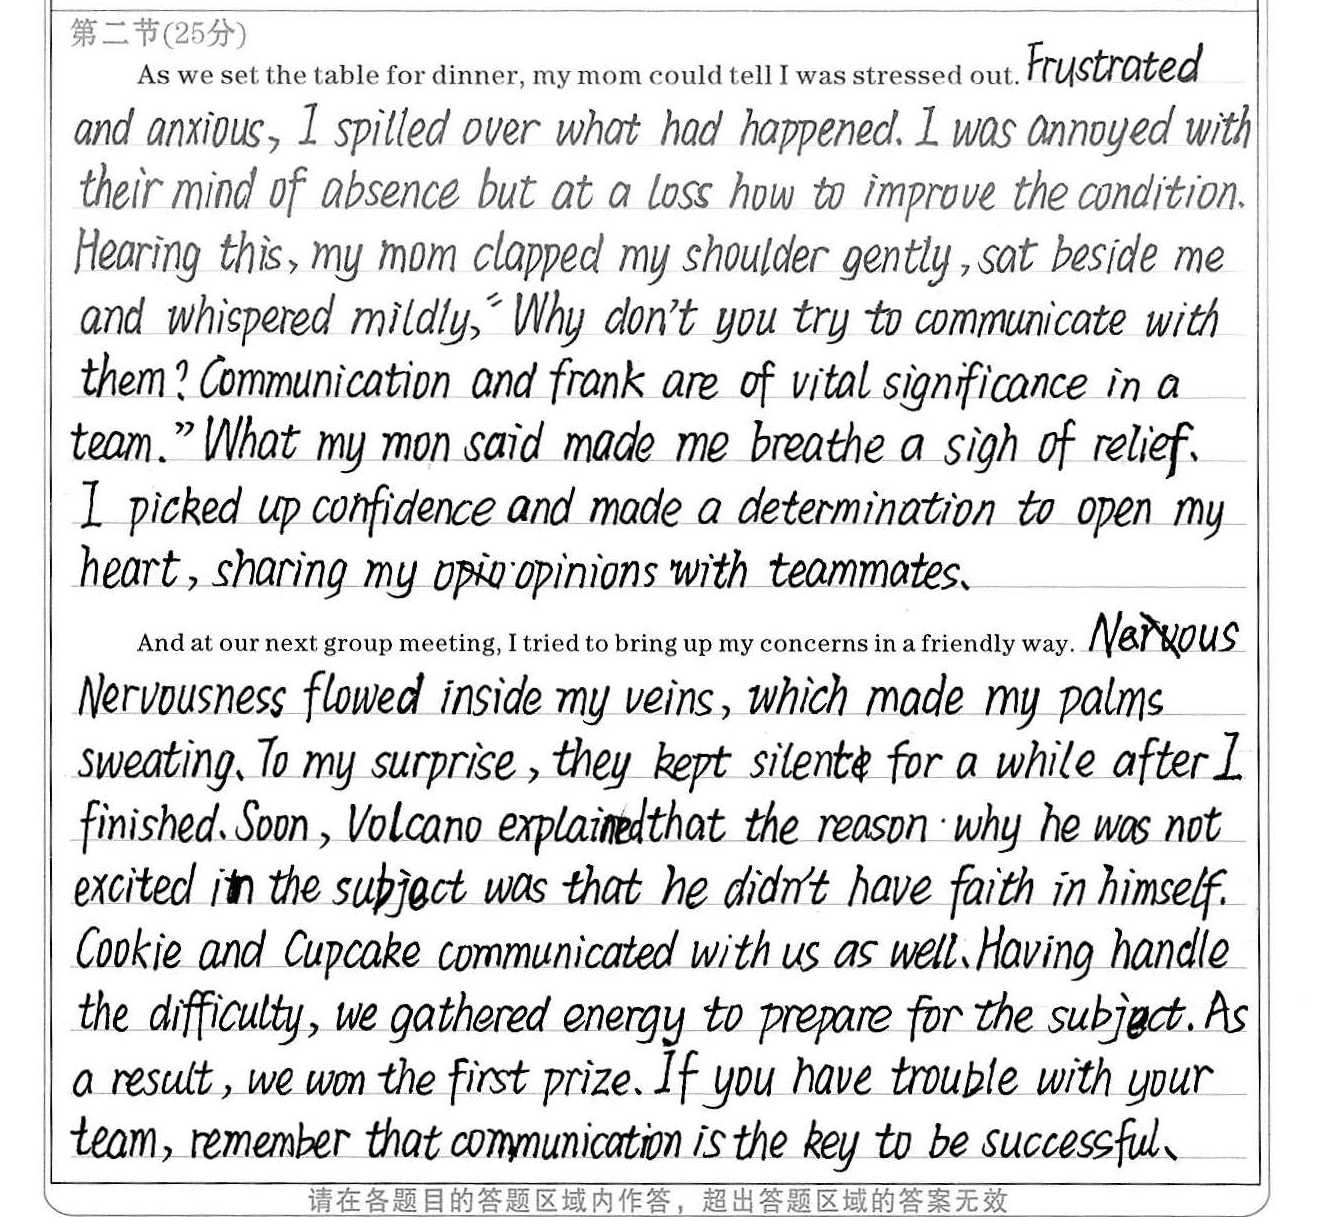 第二节(25分)
As we set the table for dinner, my mom could tell I was stressed out. Frustrated
and anxious, I spilled over what had happened. I was annoyed with
their mind of absence but at a loss how to improve the condition.
Hearing this, my mom clapped my shoulder gently, sat beside me
and whispered mildly, "Why don't you try to communicate with
them? Communication and frank are of vital significance in a
team." What my mon said made me breathe a sigh of relief.
I picked up confidence and made a determination to open my
heart, sharing my opinions with teammates.
And at our next group meeting, I tried to bring up my concerns in a friendly way. Nervous
Nervousness flowed inside my veins, which made my palms
sweating. To my surprise, they kept silent for a while after I
finished. Soon, Volcano explained that the reason why he was not
excited in the subject was that he didn't have faith in himself.
Cookie and Cupcake communicated with us as well. Having handle
the difficulty, we gathered energy to prepare for the subject. As
a result, we won the first prize. If you have trouble with your
team, remember that communication is the key to be successful.
请在各题目的答题区域内作答，超出答题区域的答案无效